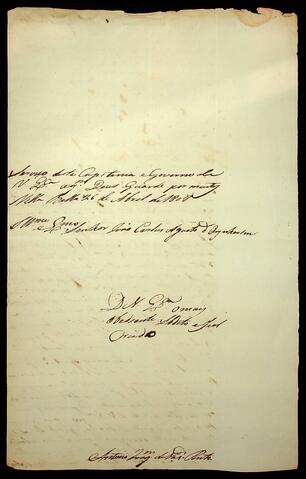 Serviço desta Capitania e Governo de
V Ex.ª aq.m Deus Guarde por muitos
Villa 26 de Abril de
Illmo e Exmo Senhor João Carlos Augusto d'Oyenhausen
D. V. Ex.ª omais
Obediente Subdito e fiel
Criado
Antonio de